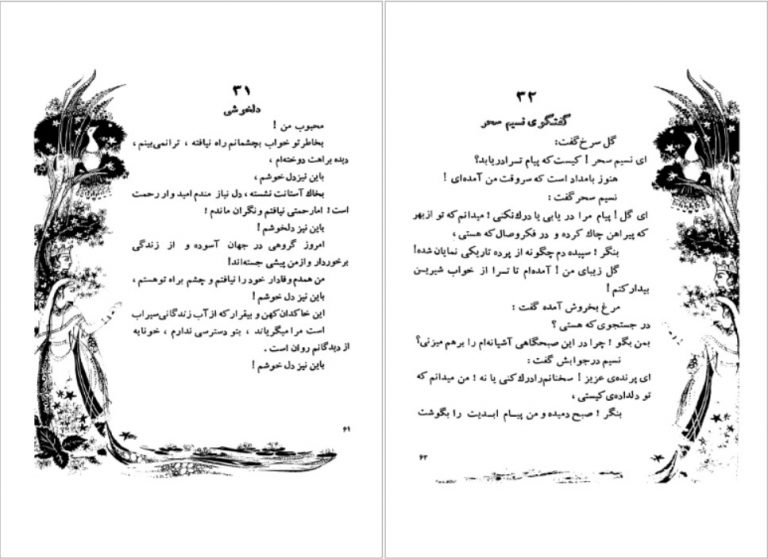 ۳۱
دلخوشی
محبوب من !
بخاطر تو خواب بچشمانم راه نیافته ، ترانمی‌بینم ،
دیده براهت دوخته‌ام ،
باین نیز دل خوشم ،
بخاك آستانت نشسته ، دل نیاز مندم امید وار رحمت
است ! امارحمتی نیافتم و نگران ماندم !
باین نیز دلخوشم !
امروز گروهی در جهان آسوده و از زندگی
برخوردار و ازمن پیشی جسته‌اند!
من همدم وفادار خود را نیافتم و چشم براه توهستم ،
باین نیز دل خوشم !
این خاکدان کهن و بیقرار که از آب زندگانی سیراب
است مرا میگریاند ، بتو دسترسی ندارم ، خونابه
از دیدگانم روان است .
باین نیز دل خوشم !
۶۱
۳۲
گفتگوی نسیم سحر
گل سرخ گفت:
ای نسیم سحر ! کیست که پیام ترا دریابد؟
هنوز بامداد است که سروقت من آمده‌ای !
نسیم سحر گفت :
ای گل ! پیام مرا در یابی یا درك نکنی ! میدانم که تو از بهر
که پیراهن چاك کرده و در فکر وصال که هستی ،
بنگر ! سپیده دم چگونه از پرده تاریکی نمایان شده!
گل زیبای من ! آمده‌ام تا ترا از خواب شیرین
بیدار کنم !
مرغ بخروش آمده گفت :
در جستجوی که هستی ؟
بمن بگو ! چرا در این صبحگاهی آشیانه‌ام را برهم میزنی؟
نسیم در جوابش گفت :
ای پرنده‌ی عزیز ! سخنانم رادرك کنی یا نه ! من میدانم که
تو دلداده‌ی کیستی ,
بنگر ! صبح دمیده و من پیام ابدیت را بگوشت
۶۲